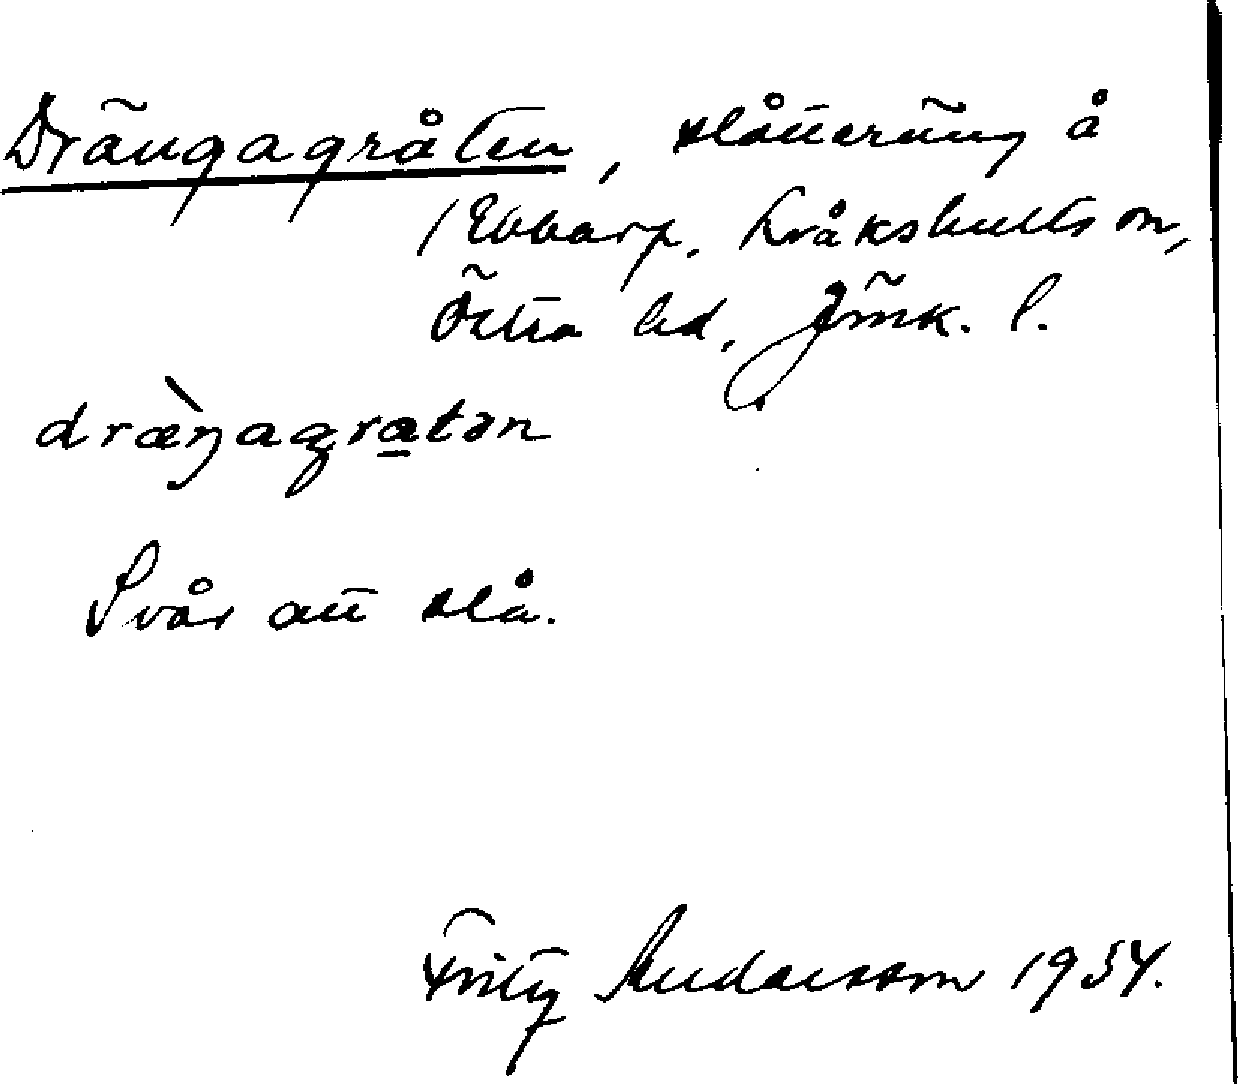 Drängagråten, slåtteräng å
Ebbarp, Kråkshults sn,
Östra hd, Jönk. l.
dræ̀ŋagra̲tən
Svår att slå.
Fritz Andersson 1934.